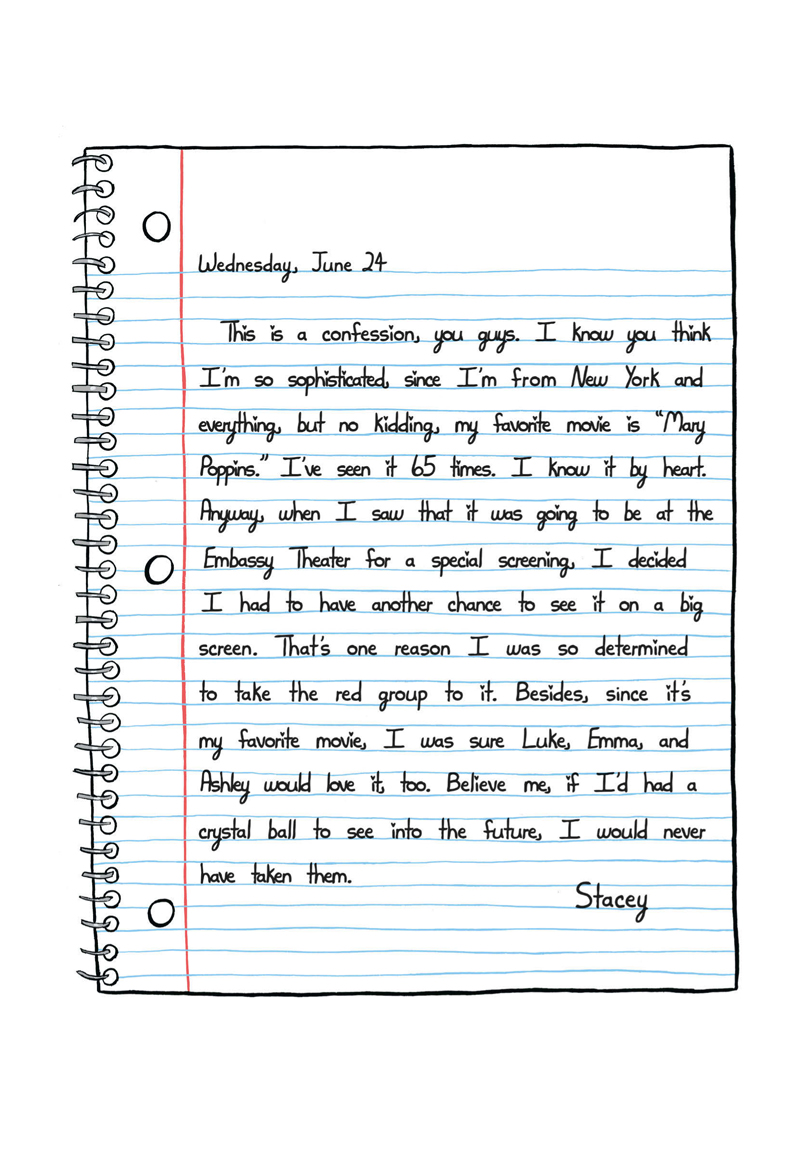 Wednesday, June 24
This is a confession, you guys. I know you think
I'm so sophisticated, since I'm from New York and
everything, but no kidding, my favorite movie is "Mary
Poppins." I've seen it 65 times. I know it by heart.
Anyway, when I saw that it was going to be at the
Embassy Theater for a special screening, I decided
I had to have another chance to see it on a big
screen. That's one reason I was so determined
to take the red group to it. Besides, since it's
my favorite movie, I was sure Luke, Emma, and
Ashley would love it, too. Believe me, if I'd had a
crystal ball to see into the future, I would never
have taken them.
Stacey